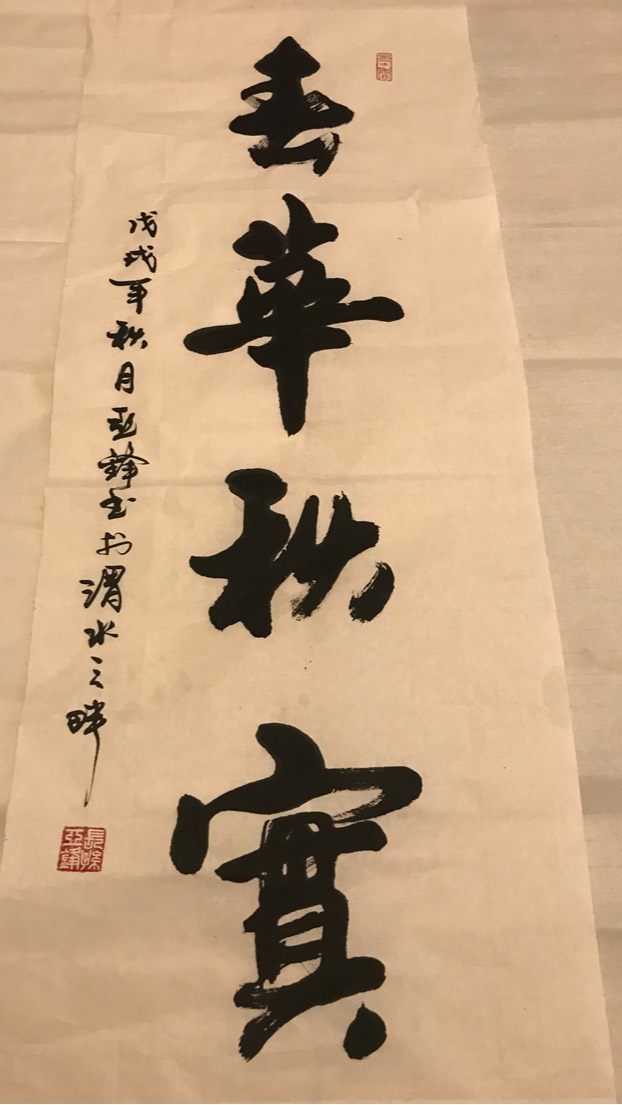 春華秋實
戊戌年秋月亚鋒书於渭水之畔